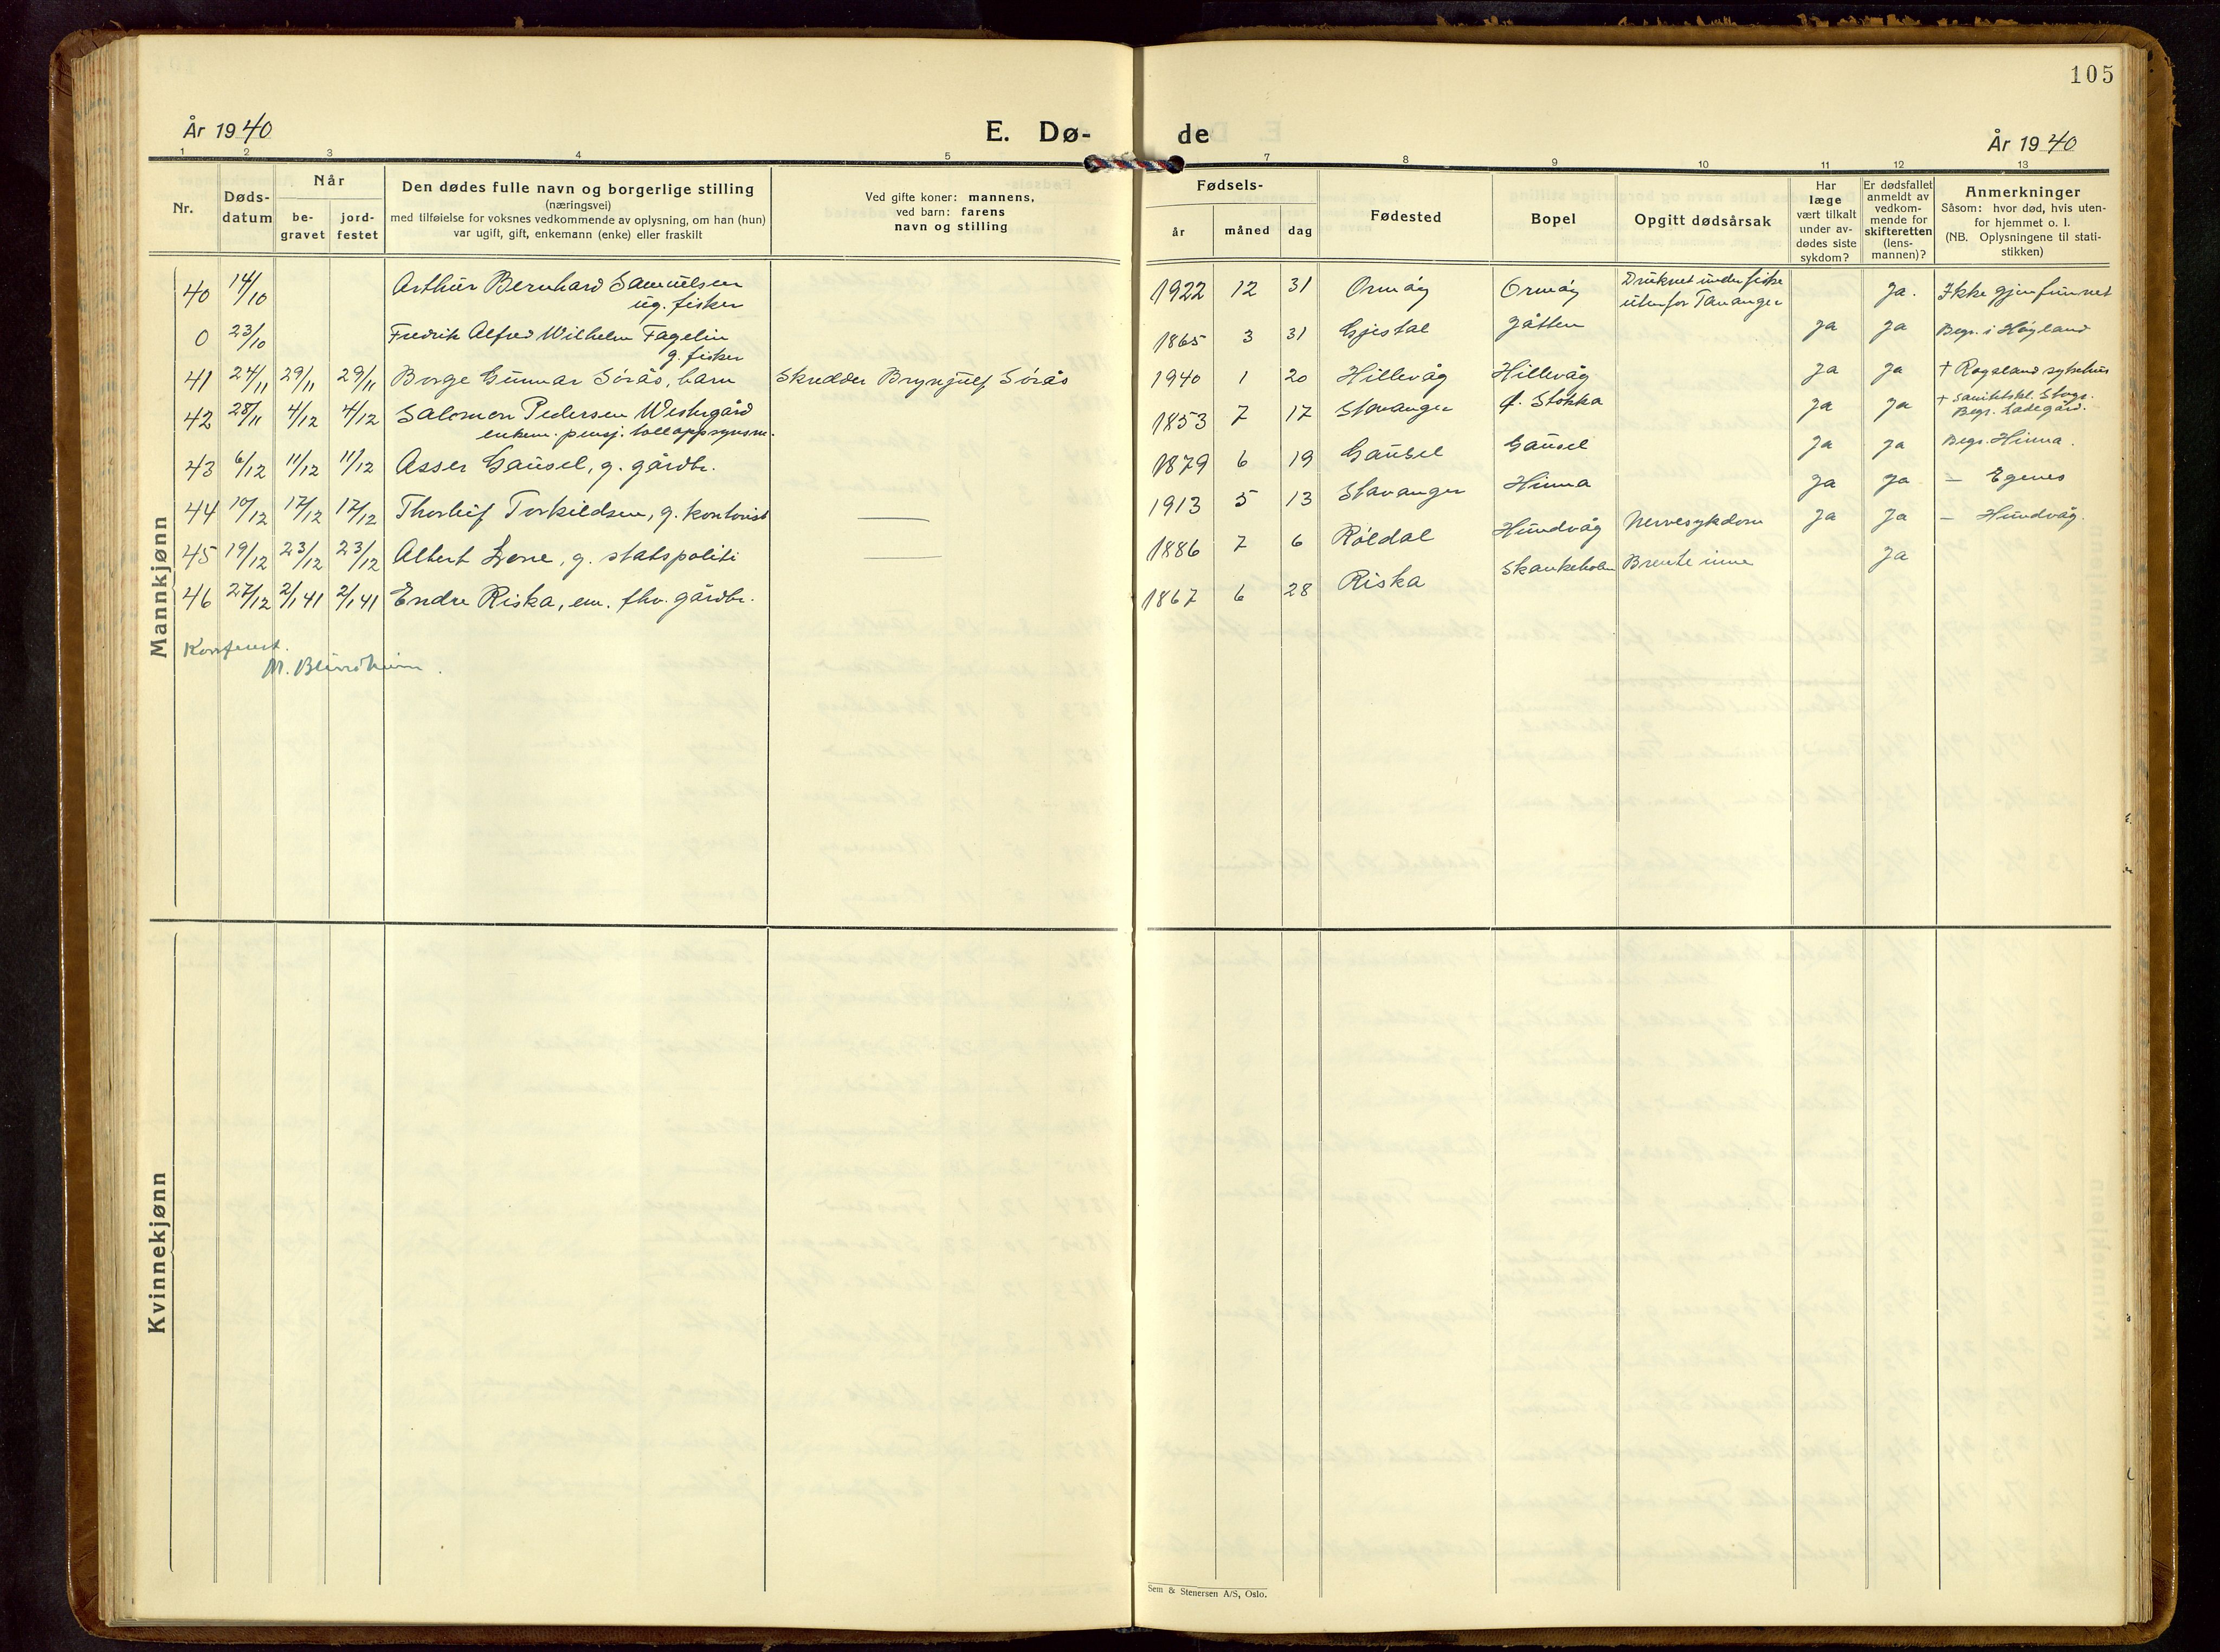 105
År 1940
E. Dø- de
År 1940
1 2 3 4 5 7 8 9 10 11 12 13
Nr.
Døds-
datum
Når
be-
gravet
jord-
festet
Den dødes fulle navn og borgerlige stilling
(næringsvei)
med tilføielse for voksnes vedkommende av oplysning, om han (hun)
var ugift, gift, enkemann (enke) eller fraskilt
Ved gifte koner: mannens,
ved barn: farens
navn og stilling
Fødsels-
år måned dag
Fødested
Bopel
Opgitt dødsårsak
Har
læge
vært tilkalt
under av-
dødes siste
sykdom?
Er dødsfallet
anmeldt av
vedkom-
mende for
skifteretten
(lens-
mannen)?
Anmerkninger
Såsom: hvor død, hvis uten-
for hjemmet o. l.
(NB. Oplysningene til stati-
stikken)
Mannkjønn
40 14/10 Arthur Bernhard Samuelsen
ug. fisker
1922 12 31 Ormøy Ormøy Druknet under fiske
utenfor Tananger
ja. Ikke gjenfunnet
0 23/10 Fredrik Alfred Wilhelm Fagelin
g. fisker
1865 3 31 Gjestal Jåtten ja ja Begr. i Høyland
41 24/11 29/11 29/11 Borge Gunnar Sørås, barn Skredder Brynjulf Sørås 1940 1 20 Hillevåg Hillevåg ja ja + Rogaland sykehus
42 28/11 4/12 4/12 Salomon Pedersen Westergård
enkem. pensj. tolloppsynsm.
1853 7 17 Stavanger St. Stokka ja ja + Sanitetskl. Stvgr.
Begr. Ladegård.
43 6/12 11/12 11/12 Asser Gausel, g. gårdbr. 1879 6 19 Gausel Gausel ja ja Begr. Hinna.
44 10/12 17/12 17/12 Thorleif Torkildsen, g. kontorist — 1913 5 13 Stavanger Hinna ja ja — Egenes
45 19/12 23/12 23/12 Albert Lene, g. statspoliti — 1886 7 6 Røldal Hundvåg Nervesykdom ja ja — Hundvåg.
46 27/12 2/1 41 2/1 41 Endre Riska, em. fhv. gårdbr. 1867 6 28 Riska Skankeholm Brente inne ja
Konferert.
M. Blindheim.
Kvinnekjønn
Sem & Stenersen A/S, Oslo.